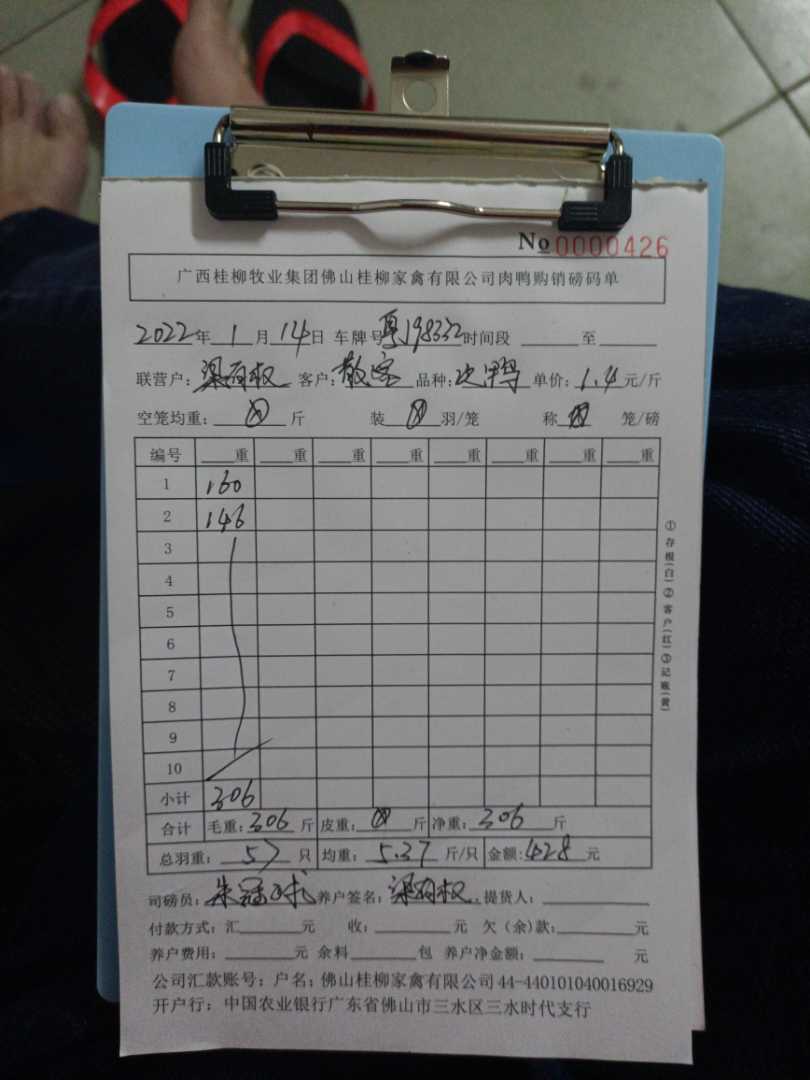 No 0000426
广西桂柳牧业集团佛山桂柳家禽有限公司肉鸭购销磅码单
2022年1月14日 车牌号粤J98332时间段 至
联营户: 梁有权 客户: 散客 品种: 次鸭 单价: 1.4元/斤
空笼均重: 0 斤 装 0 羽/笼 称 0 笼/磅
编号 重 重 重 重 重 重 重 重
1 160
2 146
3
4
5
6
7
8
9
10
小计 306
合计 毛重: 306 斤 皮重: 0 斤 净重: 306 斤
总羽重: 57 只 均重: 5.37 斤/只 金额: 428 元
司磅员: 朱冠球 养户签名: 梁有权 提货人:
付款方式: 汇 元 收: 元 欠(余)款: 元
养户费用: 元 余料 包 养户净金额: 元
公司汇款账号: 户名: 佛山桂柳家禽有限公司 44-440101040016929
开户行: 中国农业银行广东省佛山市三水区三水时代支行
①存根(白)②客户(红)③记账(黄)